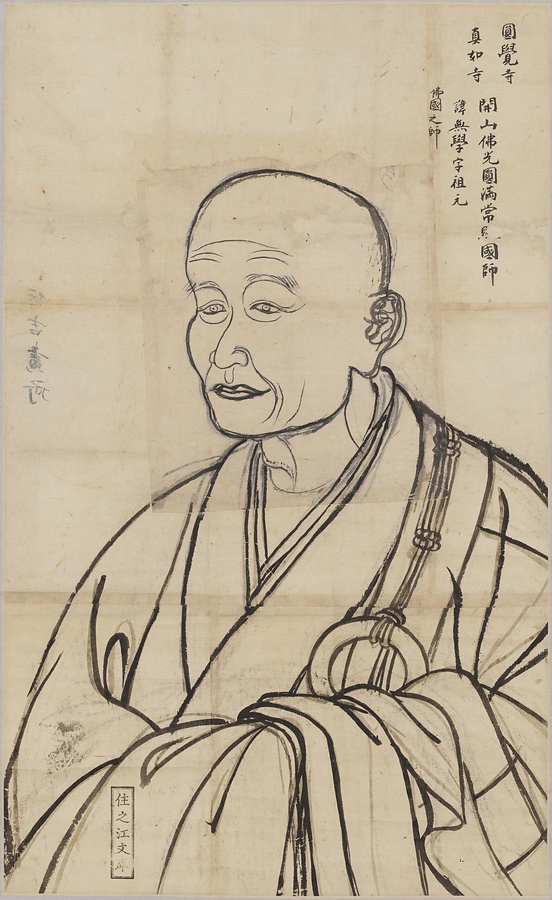 圓覺寺
真如寺
開山佛光圓滿常照國師
諱無學字祖元
佛國之師
住吉畫所
住之江文